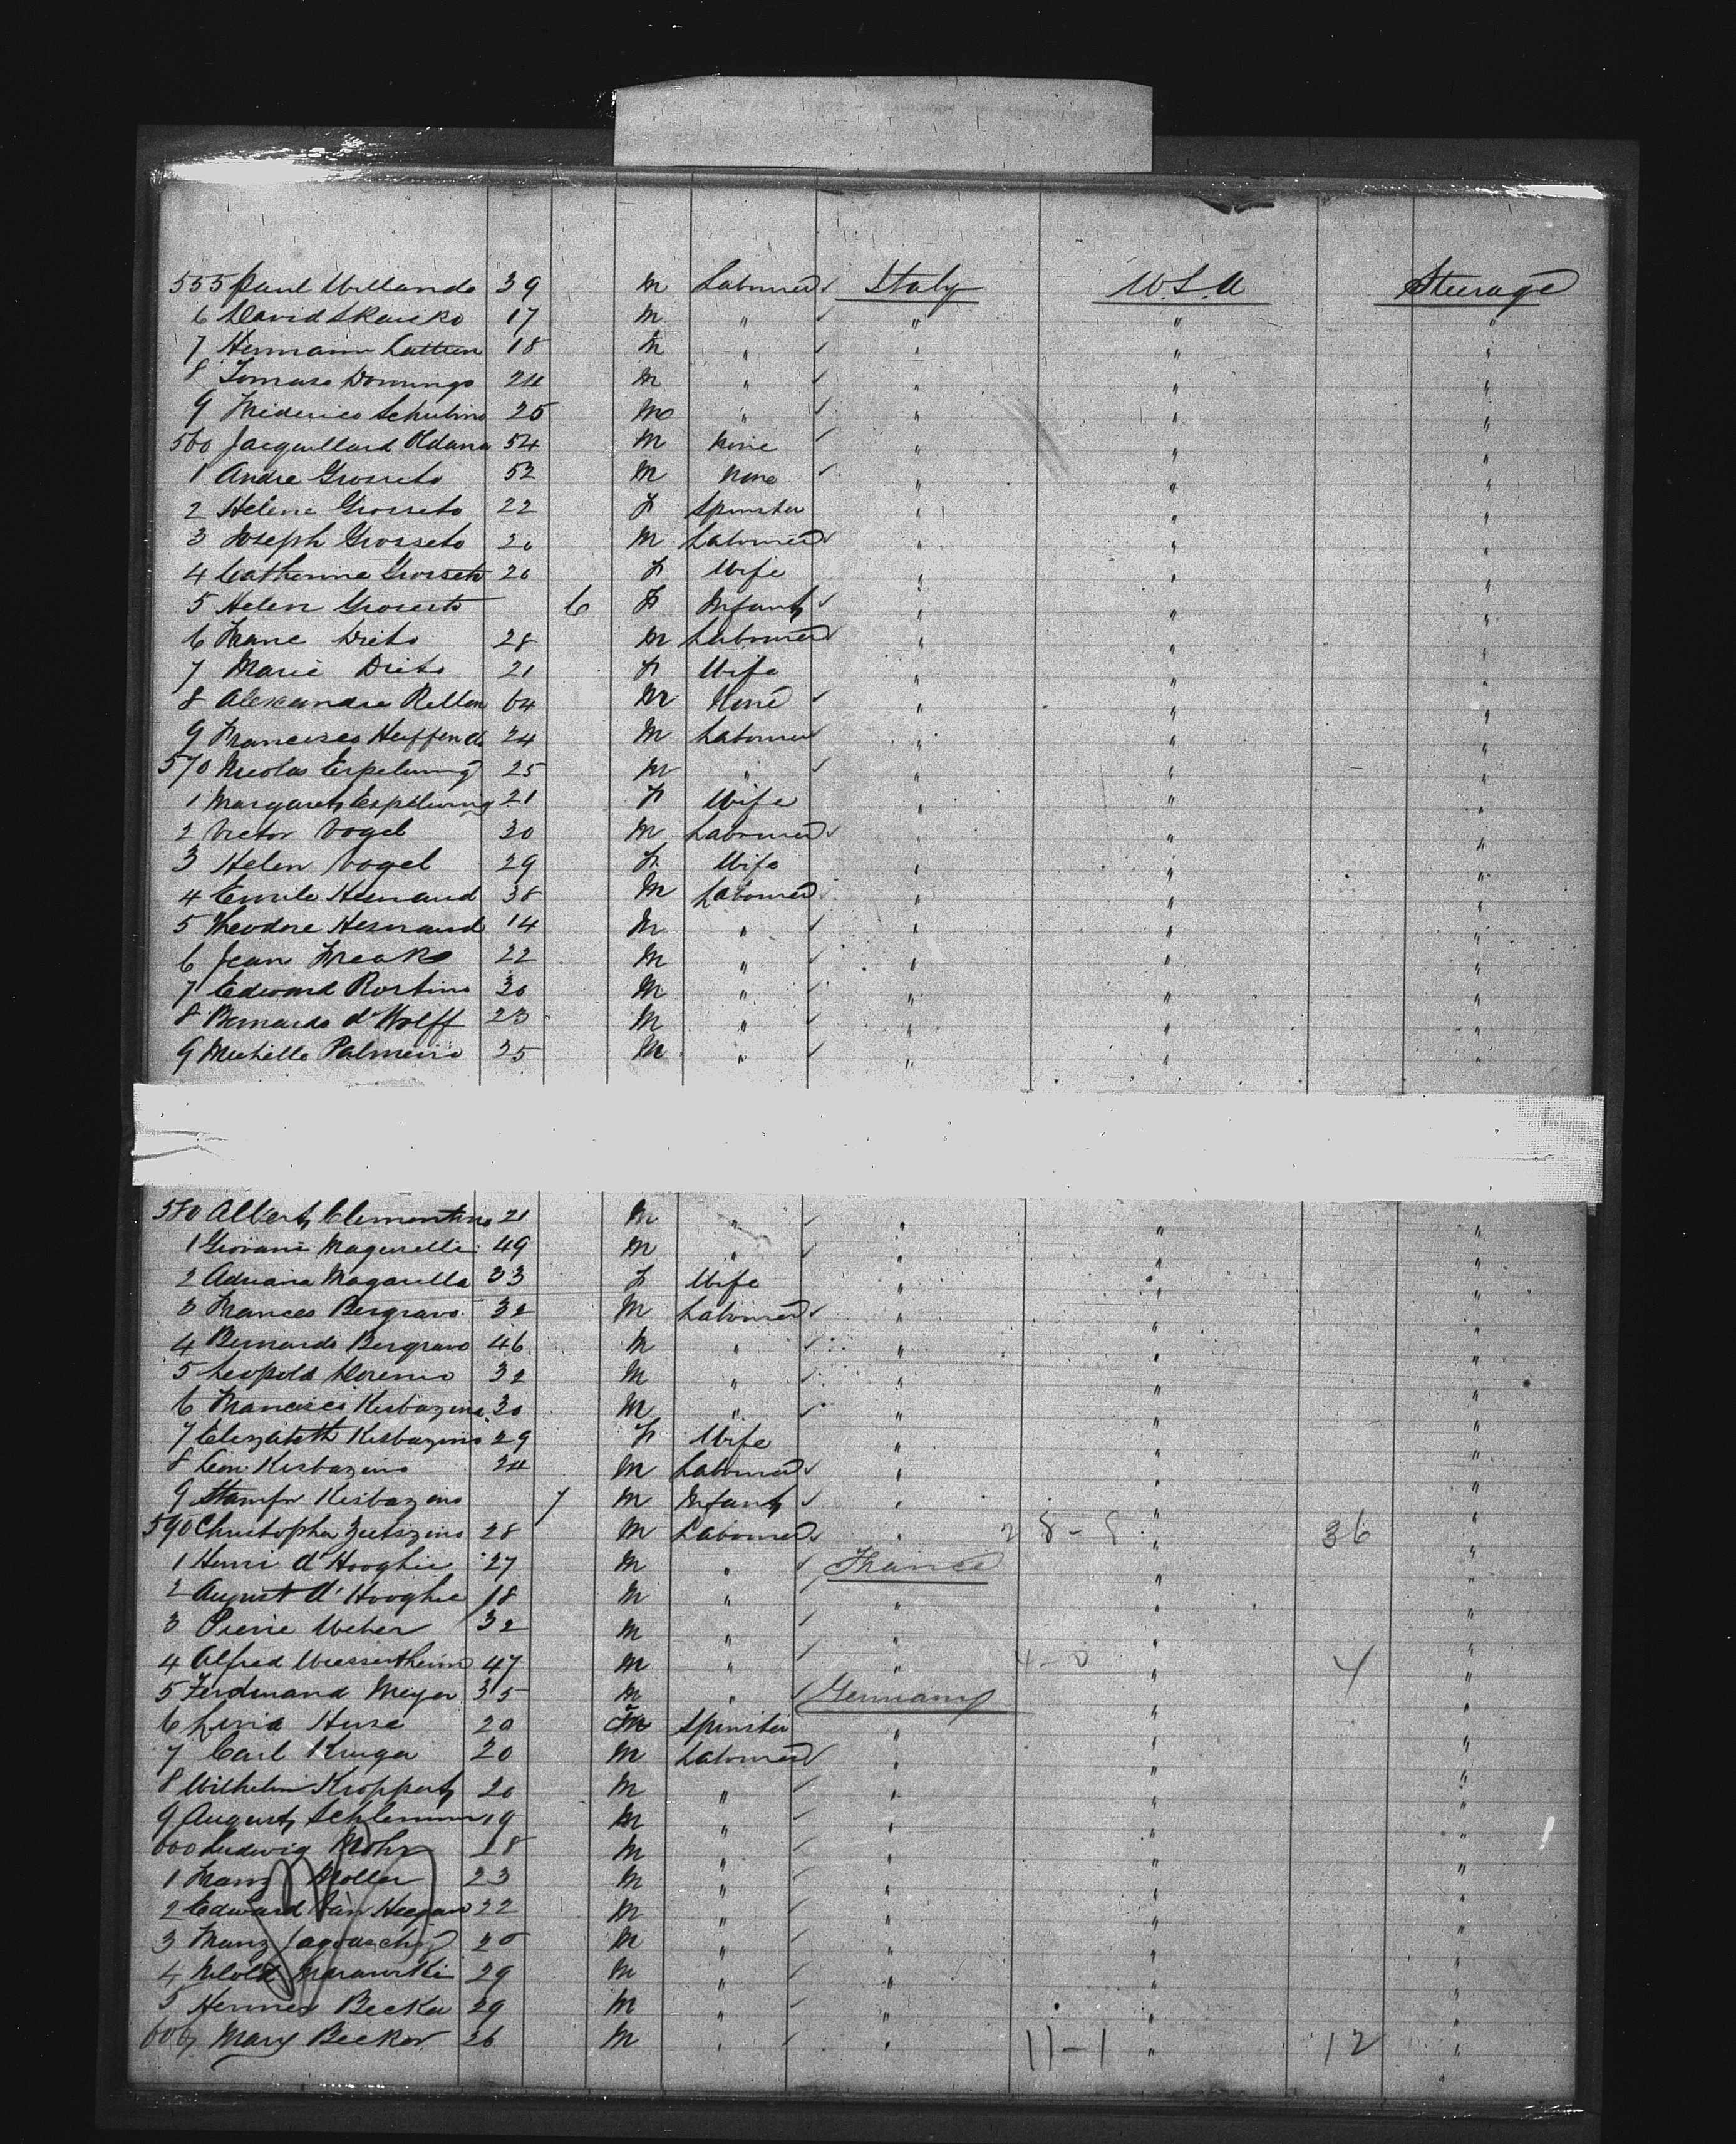 555 Paul Millando 39 M Labourer ✓ Italy U.S.A Steerage
6 David 17 M " ✓ " " "
7 Hermann 18 M " ✓ " " "
8 Tomaso Domingo 24 M " ✓ " " "
9 Frederico Schubino 25 M " ✓ " " "
560 Jacquillard Oldana 54 M None ✓ " " "
1 Andre Grosseto 52 M None ✓ " " "
2 Helene Grosseto 22 F Spinster " " "
3 Joseph Grosseto 26 M Labourer ✓ " " "
4 Catherine Grosseto 26 F Wife " " "
5 Helen Grosseto 6 F Infant ✓ " " "
6 Franc Drito 28 M Labourer ✓ " " "
7 Marie Drito 21 F Wife " " "
8 Alexandre 64 M None ✓ " " "
9 Francesco 24 M Labourer ✓ " " "
570 Nicolas Erpelding 25 M " ✓ " " "
1 Margaret 21 F Wife " " "
2 Victor Vogel 30 M Labourer ✓ " " "
3 Helen Vogel 29 F Wife " " "
4 Emile Hesnaud 38 M Labourer ✓ " " "
5 Theodore Hesnaud 14 M " ✓ " " "
6 Jean Freako 22 M " ✓ " " "
7 Edward Rostino 30 M " ✓ " " "
8 Bernardo d'Wolff 23 M " ✓ " " "
9 Michelle Palmeiro 25 M " ✓ " " "
580 Albert Clementino 21 M " ✓ " " "
1 Giovani Magurelli 49 M " ✓ " " "
2 Adriana Magarella 33 F Wife " " "
3 Frances Bergravo 32 M Labourer ✓ " " "
4 Bernardo Bergravo 46 M " ✓ " " "
5 Leopold 32 M " ✓ " " "
6 Francisco Kisbazino 30 M " ✓ " " "
7 Elizabeth Kisbazino 29 F Wife " " "
8 Leon Kisbazino 24 M Labourer ✓ " " "
9 Kisbazino 7 M Infant ✓ " " "
590 Christopher 28 M Labourer ✓ " 28-8 " 36 "
1 Henri d'Hooghie 27 M " ✓ France " "
2 August d'Hooghie 18 M " " " "
3 Pierre Weber 32 M " ✓ " " "
4 Alfred Wiessertheim 47 M " ✓ " 4-0 " 4 "
5 Ferdinand Meyer 35 M " ✓ Germany " "
6 Lina Huse 20 F Spinster " " "
7 Carl Kruger 20 M Labourer ✓ " " "
8 Wilhelm Kroppert 20 M " ✓ " " "
9 August Schlemm 19 M " ✓ " " "
600 Ludwig Mohr 18 M " ✓ " " "
1 Franz Moller 23 M " ✓ " " "
2 Edward Van 22 M " ✓ " " "
3 Franz 20 M " ✓ " " "
4 Murawski 29 M " ✓ " " "
5 Hermes Becker 29 M " ✓ " " "
606 Mary Becker 26 M " ✓ " 11-1 " 12 "